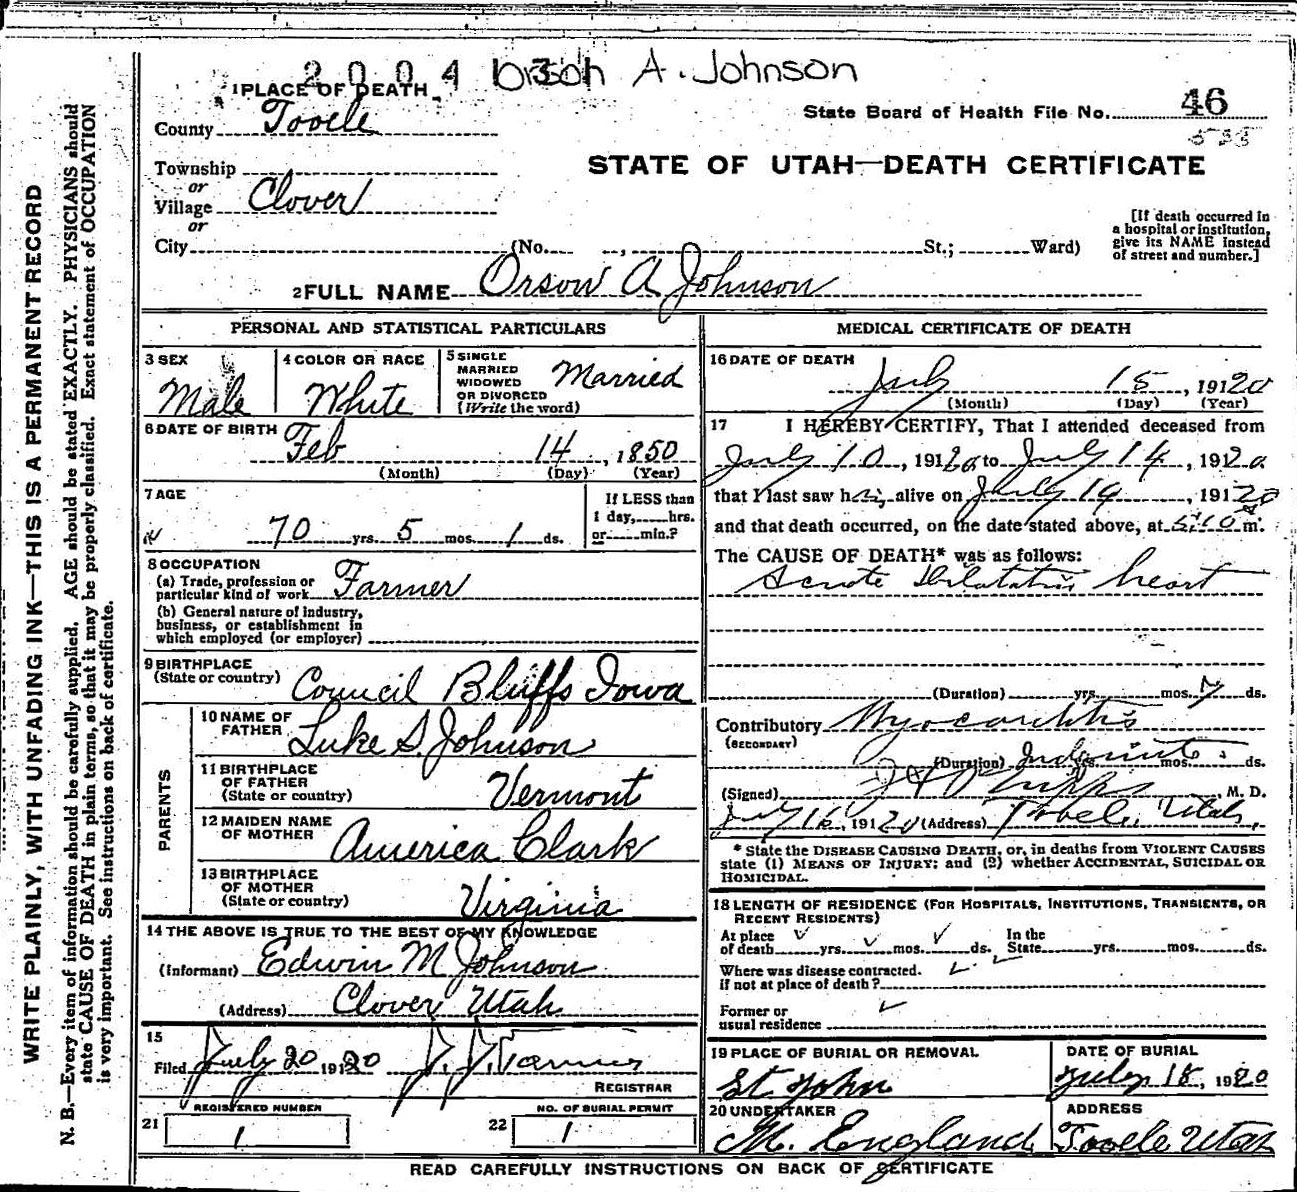 2004 Orson A. Johnson
1 PLACE OF DEATH
County Tooele
State Board of Health File No. 46
STATE OF UTAH—DEATH CERTIFICATE
Township
or
Village Clover
or
City (No. , St.; Ward)
[If death occurred in
a hospital or institution,
give its NAME instead
of street and number.]
2 FULL NAME Orson A Johnson
PERSONAL AND STATISTICAL PARTICULARS
3 SEX
Male
4 COLOR OR RACE
White
5 SINGLE
MARRIED
WIDOWED
OR DIVORCED
(Write the word)
Married
6 DATE OF BIRTH
Feb 14, 1850
(Month) (Day) (Year)
7 AGE
70 yrs. 5 mos. 1 ds.
If LESS than
1 day, hrs.
or min.?
8 OCCUPATION
(a) Trade, profession or
particular kind of work Farmer
(b) General nature of industry,
business, or establishment in
which employed (or employer)
9 BIRTHPLACE
(State or country) Council Bluffs Iowa
PARENTS
10 NAME OF
FATHER Luke S. Johnson
11 BIRTHPLACE
OF FATHER
(State or country) Vermont
12 MAIDEN NAME
OF MOTHER America Clark
13 BIRTHPLACE
OF MOTHER
(State or country) Virginia
14 THE ABOVE IS TRUE TO THE BEST OF MY KNOWLEDGE
(Informant) Edwin M Johnson
(Address) Clover Utah
15
Filed July 20 19120
REGISTRAR
REGISTERED NUMBER
21 1
NO. OF BURIAL PERMIT
22 1
MEDICAL CERTIFICATE OF DEATH
16 DATE OF DEATH
July 15, 19120
(Month) (Day) (Year)
17 I HEREBY CERTIFY, That I attended deceased from
July 10, 19120 to July 14, 19120
that I last saw him alive on July 14, 19120
and that death occurred, on the date stated above, at 5:10 m.
The CAUSE OF DEATH* was as follows:
Acute Dilatation heart
(Duration) yrs. mos. 7 ds.
Contributory Myocarditis
(SECONDARY)
(Duration) Indefinite yrs. mos. ds.
(Signed) M. D.
July 16, 19120 (Address) Tooele, Utah.
* State the DISEASE CAUSING DEATH, or, in deaths from VIOLENT CAUSES
state (1) MEANS OF INJURY; and (2) whether ACCIDENTAL, SUICIDAL OR
HOMICIDAL.
18 LENGTH OF RESIDENCE (FOR HOSPITALS, INSTITUTIONS, TRANSIENTS, OR
RECENT RESIDENTS)
At place In the
of death yrs. mos. ds. State yrs. mos. ds.
Where was disease contracted.
if not at place of death?
Former or
usual residence
19 PLACE OF BURIAL OR REMOVAL
St. John
DATE OF BURIAL
July 18, 1920
20 UNDERTAKER
M. England
ADDRESS
Tooele Utah
READ CAREFULLY INSTRUCTIONS ON BACK OF CERTIFICATE
WRITE PLAINLY, WITH UNFADING INK—THIS IS A PERMANENT RECORD
N. B.—Every item of information should be carefully supplied. AGE should be stated EXACTLY. PHYSICIANS should
state CAUSE OF DEATH in plain terms, so that it may be properly classified. Exact statement of OCCUPATION
is very important. See instructions on back of certificate.